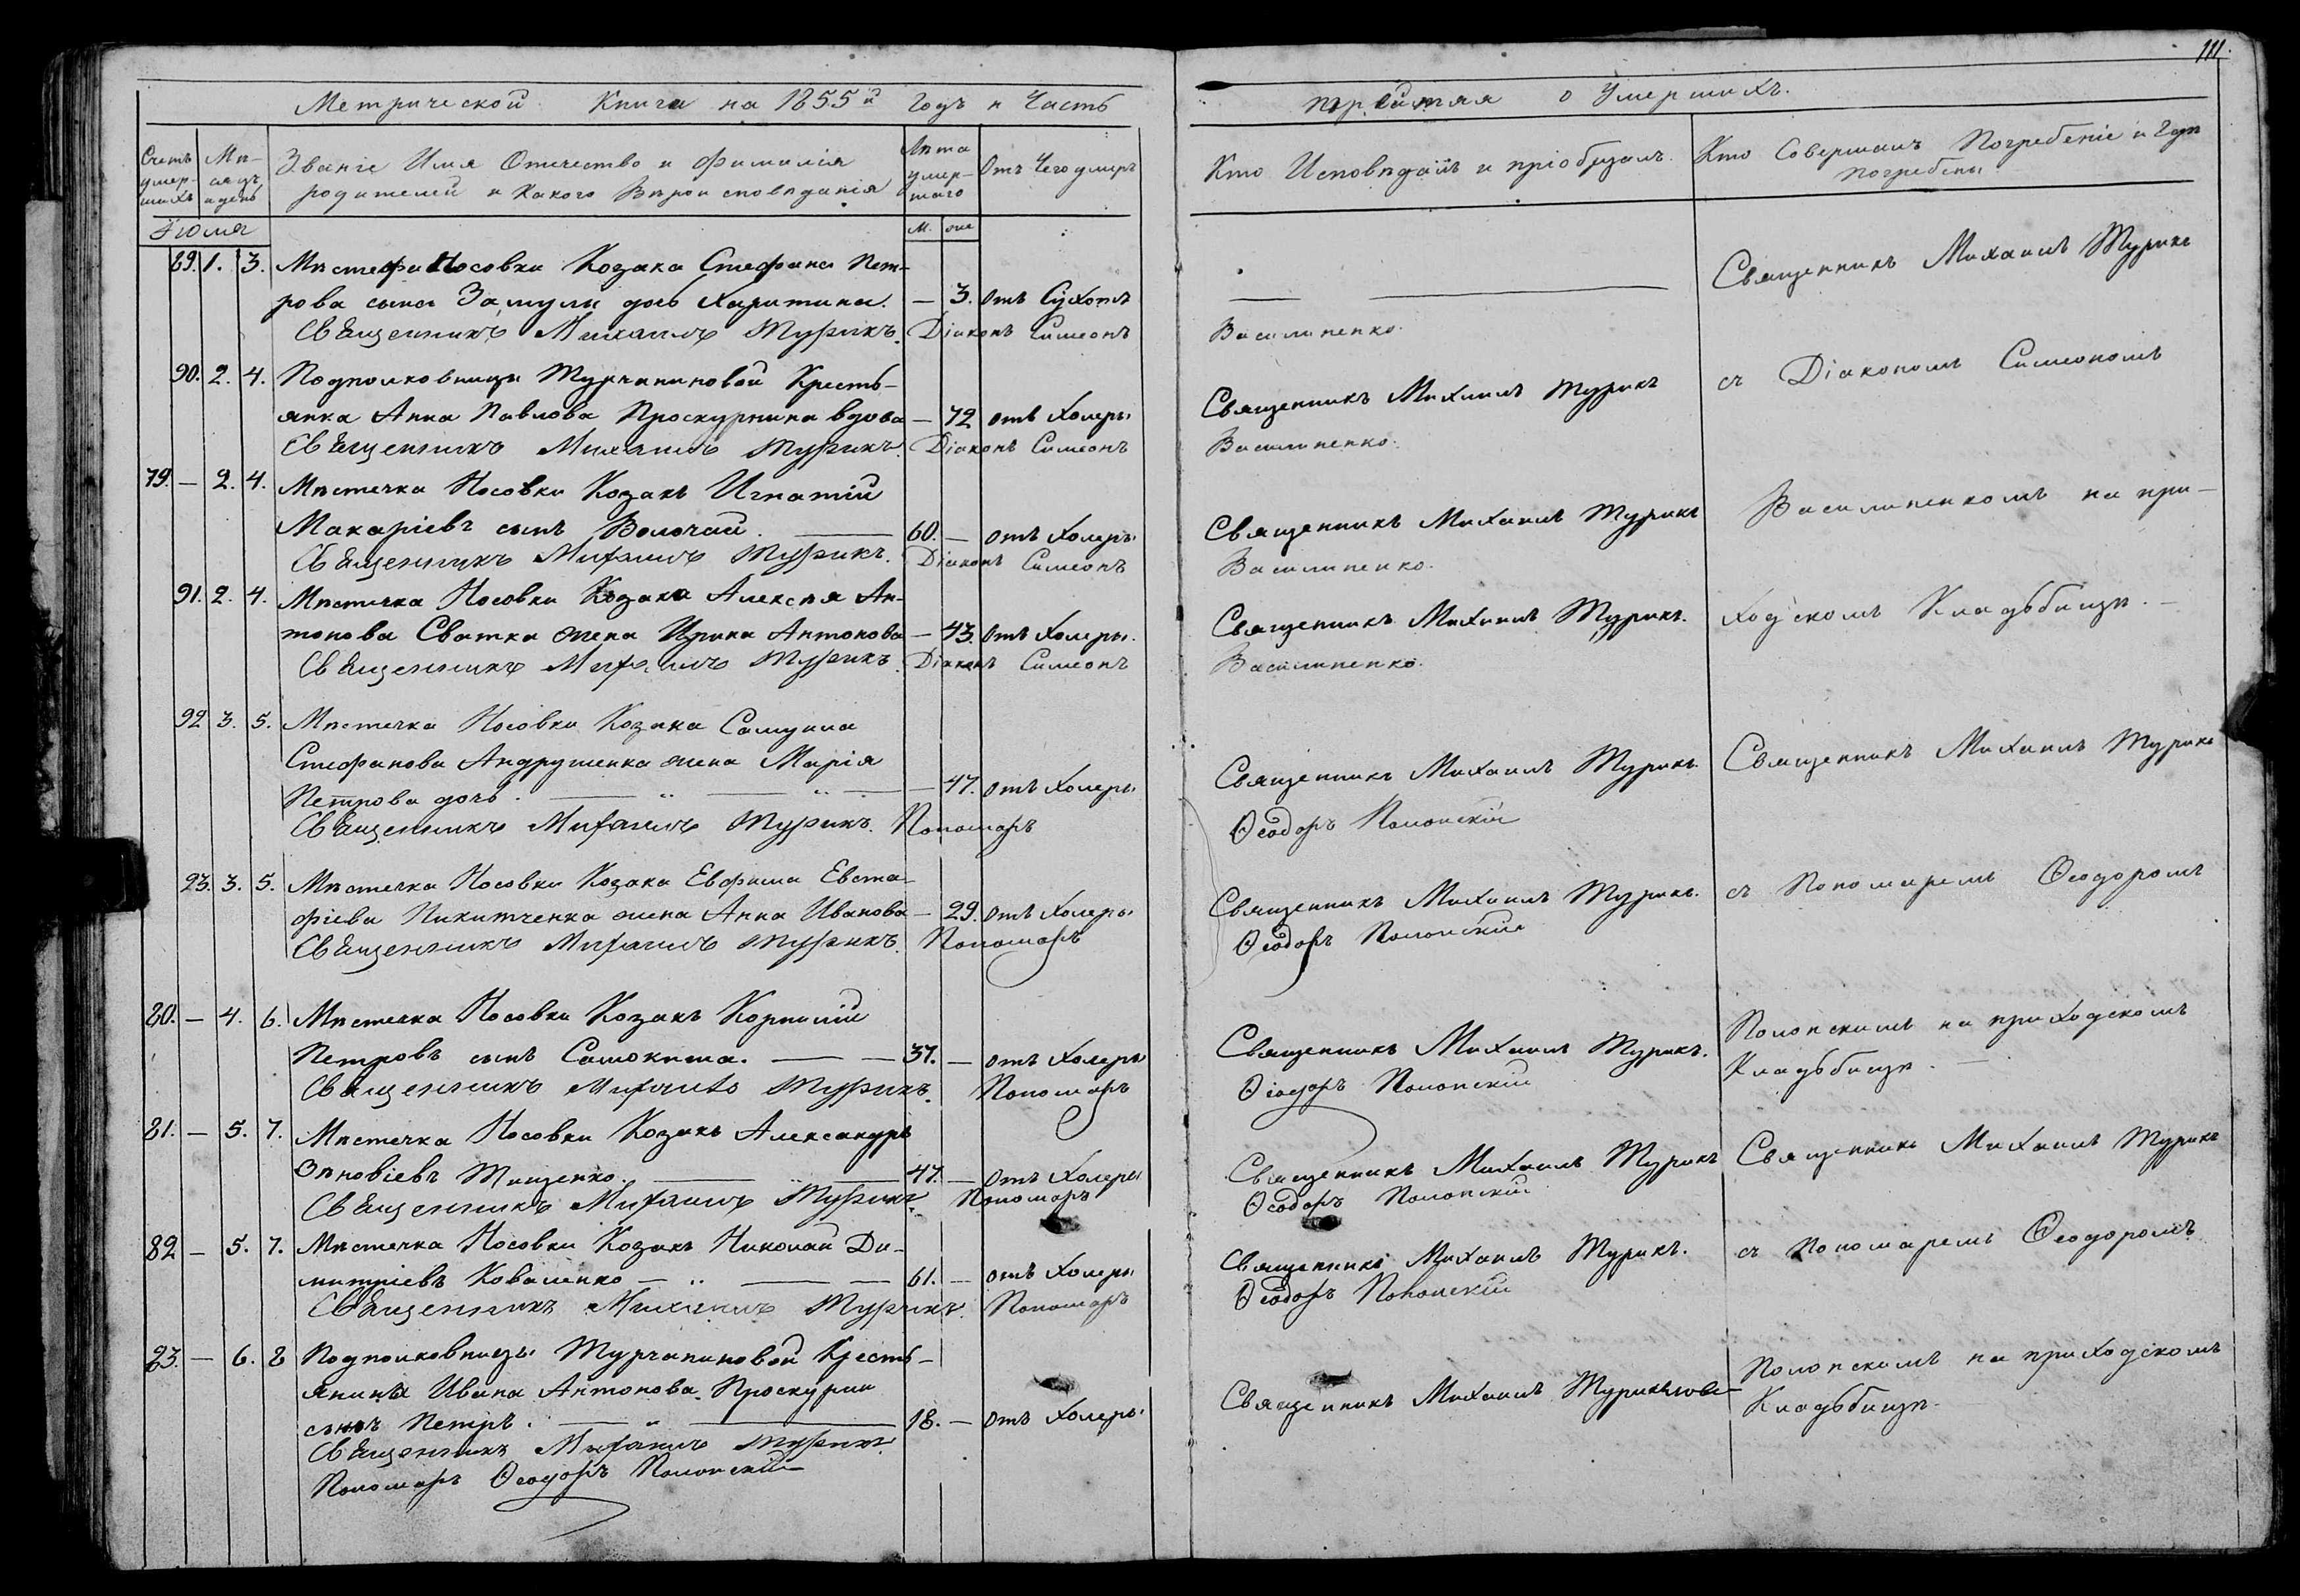 111.
Метрической Книги на 1855й Годъ и Часть
третяя о Умершихъ.
Счетъ умер-шихъ
Мѣ-сяцъ и день
Званіе Имя Отечество и Фамилія
родителей и какого Вѣроисповѣданія
Лѣта умер-шаго
Отъ Чего умеръ
Кто Исповѣдалъ и пріобщалъ.
Кто Совершалъ Погребеніе и Гдѣ
погребены
Іюля
М. жен
89. 1. 3. Мѣстечка Носовки Козака Стефана Пет-
рова сына Замулы дочь Харитина. — 3. отъ Сухотъ
Священникъ Михаилъ Турикъ. Діаконъ Симеонъ
Василипенко.
Священникъ Михаилъ Турикъ
90. 2. 4. Подполковницы Турчаниновой Кресть-
янка Анна Павлова Проскурнина вдова — 72 отъ Холеры
Священникъ Михаилъ Турикъ
съ Діакономъ Симеономъ
Священникъ Михаилъ Турикъ. Діаконъ Симеонъ
Василипенко.
79. — 2. 4. Мѣстечка Носовки Козакъ Игнатій
Макаріевъ сынъ Волочай. 60. — отъ Холеры
Священникъ Михаилъ Турикъ
Василипенкомъ на при-
Священникъ Михаилъ Турикъ. Діаконъ Симеонъ
Василипенко.
91. 2. 4. Мѣстечка Носовки Козака Алексѣя Ан-
тонова Сватка жена Ирина Антонова — 43. отъ Холеры.
Священникъ Михаилъ Турикъ.
ходскомъ Кладьбищѣ. —
Священникъ Михаилъ Турикъ. Діаконъ Симеонъ
Василипенко.
92 3. 5. Мѣстечка Носовки Козака Самуила
Стефанова Андрушенка жена Марія
Петрова дочь. — 47. отъ Холеры
Священникъ Михаилъ Турикъ
Священникъ Михаилъ Турикъ
Священникъ Михаилъ Турикъ. Пономарь
Ѳеодоръ Полонскій
93. 3. 5. Мѣстечка Носовки Козака Евфима Евста-
фіева Никитченка жена Анна Иванова — 29. отъ Холеры
Священникъ Михаилъ Турикъ.
съ Пономаремъ Ѳеодоромъ
Священникъ Михаилъ Турикъ. Пономарь
Ѳеодоръ Полонскій
80. — 4. 6. Мѣстечка Носовки Козакъ Корнилій
Петровъ сынъ Самокиша. — 37. — отъ Холеры
Священникъ Михаилъ Турикъ.
Полонскимъ на приходскомъ
Кладьбищѣ. —
Священникъ Михаилъ Турикъ. Пономарь
Ѳеодоръ Полонскій
81. — 5. 7. Мѣстечка Носовки Козакъ Александръ
Зѣновіевъ Тищенко. 47. — отъ Холеры
Священникъ Михаилъ Турикъ
Священникъ Михаилъ Турикъ
Священникъ Михаилъ Турикъ. Пономарь
Ѳеодоръ Полонскій
82 — 5. 7. Мѣстечка Носовки Козакъ Николай Ди-
митріевъ Коваленко — 61. — отъ Холеры
Священникъ Михаилъ Турикъ.
съ Пономаремъ Ѳеодоромъ
Священникъ Михаилъ Турикъ. Пономарь
Ѳеодоръ Полонскій
83. — 6. 8 Подполковницы Турчаниновой Кресть-
янина Ивана Антонова Проскурни
сынъ Петръ. — 18. — отъ Холеры
Священникъ Михаилъ Турикъ
Полонскимъ на приходскомъ
Кладьбищѣ.
Священникъ Михаилъ Турикъ
Пономарь Ѳеодоръ Полонскій